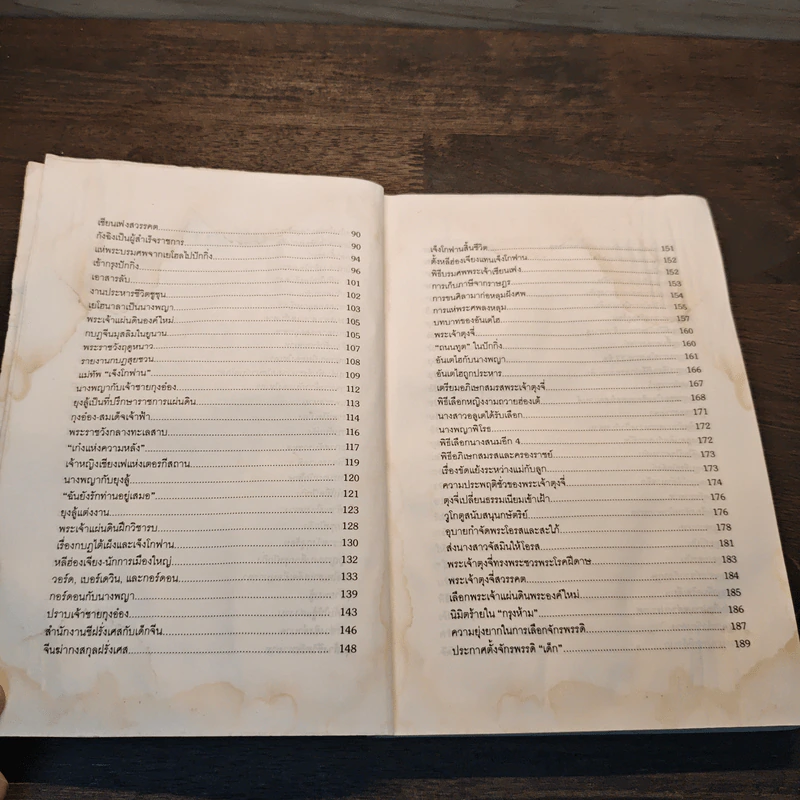 เซียนเฟงสวรรคต 90
กังฮิงเป็นผู้สำเร็จราชการ 90
แห่พระบรมศพจากเยโฮลไปปักกิ่ง 94
เข้ากรุงปักกิ่ง 96
เอาสารลับ 101
งานประหารชีวิตซูชุน 102
เยโฮนาลาเป็นนางพญา 103
พระเจ้าแผ่นดินองค์ใหม่ 105
กบฏจีนมุสลิมในยูนาน 105
พระราชวังฤดูหนาว 107
รายงานกบฏสุยชวน 108
แม่ทัพ "เจ็งโกฟาน" 109
นางพญากับเจ้าชายกุงฮ่อง 112
ยุงลู้เป็นที่ปรึกษาราชการแผ่นดิน 113
กุงฮ่อง-สมเด็จเจ้าฟ้า 114
พระราชวังกลางทะเลสาบ 116
"เก๋งแห่งความหลัง" 117
เจ้าหญิงเซียงเฟแห่งเตอรกีสถาน 119
นางพญากับยุงลู้ 120
"ฉันยังรักท่านอยู่เสมอ" 121
ยุงลู้แต่งงาน 123
พระเจ้าแผ่นดินฝึกวิชารบ 128
เรื่องกบฏไต้เผ็งและเจ็งโกฟาน 130
หลีฮ่องเจียง-นักการเมืองใหญ่ 132
วอร์ด, เบอร์เดวิน, และกอร์ดอน 133
กอร์ดอนกับนางพญา 139
ปราบเจ้าชายกุงฮ่อง 143
สำนักงานชีฝรั่งเศสกับเด็กจีน 146
จีนฆ่ากงสกุลฝรั่งเศส 148
เจ็งโกฟานสิ้นชีวิต 151
ตั้งหลีฮ่องเจียงแทนเจ็งโกฟาน 152
พิธีบรมศพพระเจ้าเซียนเฟง 152
การเก็บภาษีจากราษฎร 153
การขนศิลามาก่อหลุมฝังศพ 154
การแห่พระศพลงหลุม 155
บทบาทของอันเตไฮ 157
พระเจ้าตุงจี่ 160
"ถนนทูต" ในปักกิ่ง 160
อันเตไฮกับนางพญา 161
อันเตไฮถูกประหาร 166
เตรียมอภิเษกสมรสพระเจ้าตุงจี่ 167
พิธีเลือกหญิงงามถวายฮ่องเต้ 168
นางสาวอลูเตได้รับเลือก 171
นางพญาพิโรธ 172
พิธีเลือกนางสนมอีก 4 172
พิธีอภิเษกสมรสและครองราชย์ 173
เรื่องขัดแย้งระหว่างแม่กับลูก 173
ความประพฤติชั่วของพระเจ้าตุงจี่ 174
ตุงจี่เปลี่ยนธรรมเนียมเข้าเฝ้า 176
วูโกตูสนับสนุนกษัตริย์ 176
อุบายกำจัดพระโอรสและสะใภ้ 178
ส่งนางสาวจัสมินให้โอรส 181
พระเจ้าตุงจี่ทรงพระชวรพระโรคฝีดาษ 183
พระเจ้าตุงจี่สวรรคต 184
เลือกพระเจ้าแผ่นดินพระองค์ใหม่ 185
นิมิตร้ายใน "กรุงห้าม" 186
ความยุ่งยากในการเลือกจักรพรรดิ 187
ประกาศตั้งจักรพรรดิ "เด็ก" 189